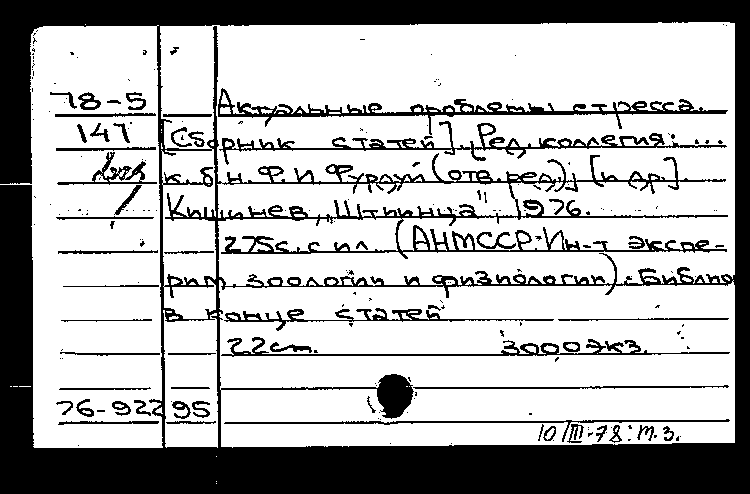 78-5 Актуальные проблемы стресса.
147 [Сборник статей]. Ред. коллегия: ...
к.б.н. Ф.И. Фурдуй (отв. ред.); [и др].
Кишинев, „Штиинца", 1976.
275с. с ил. (АН МССР. Ин-т экспе-
рим. зоологии и физиологии). Библиог
в конце статей
22 cm. 3000 экз.
76-92295
10/III-78: т.з.